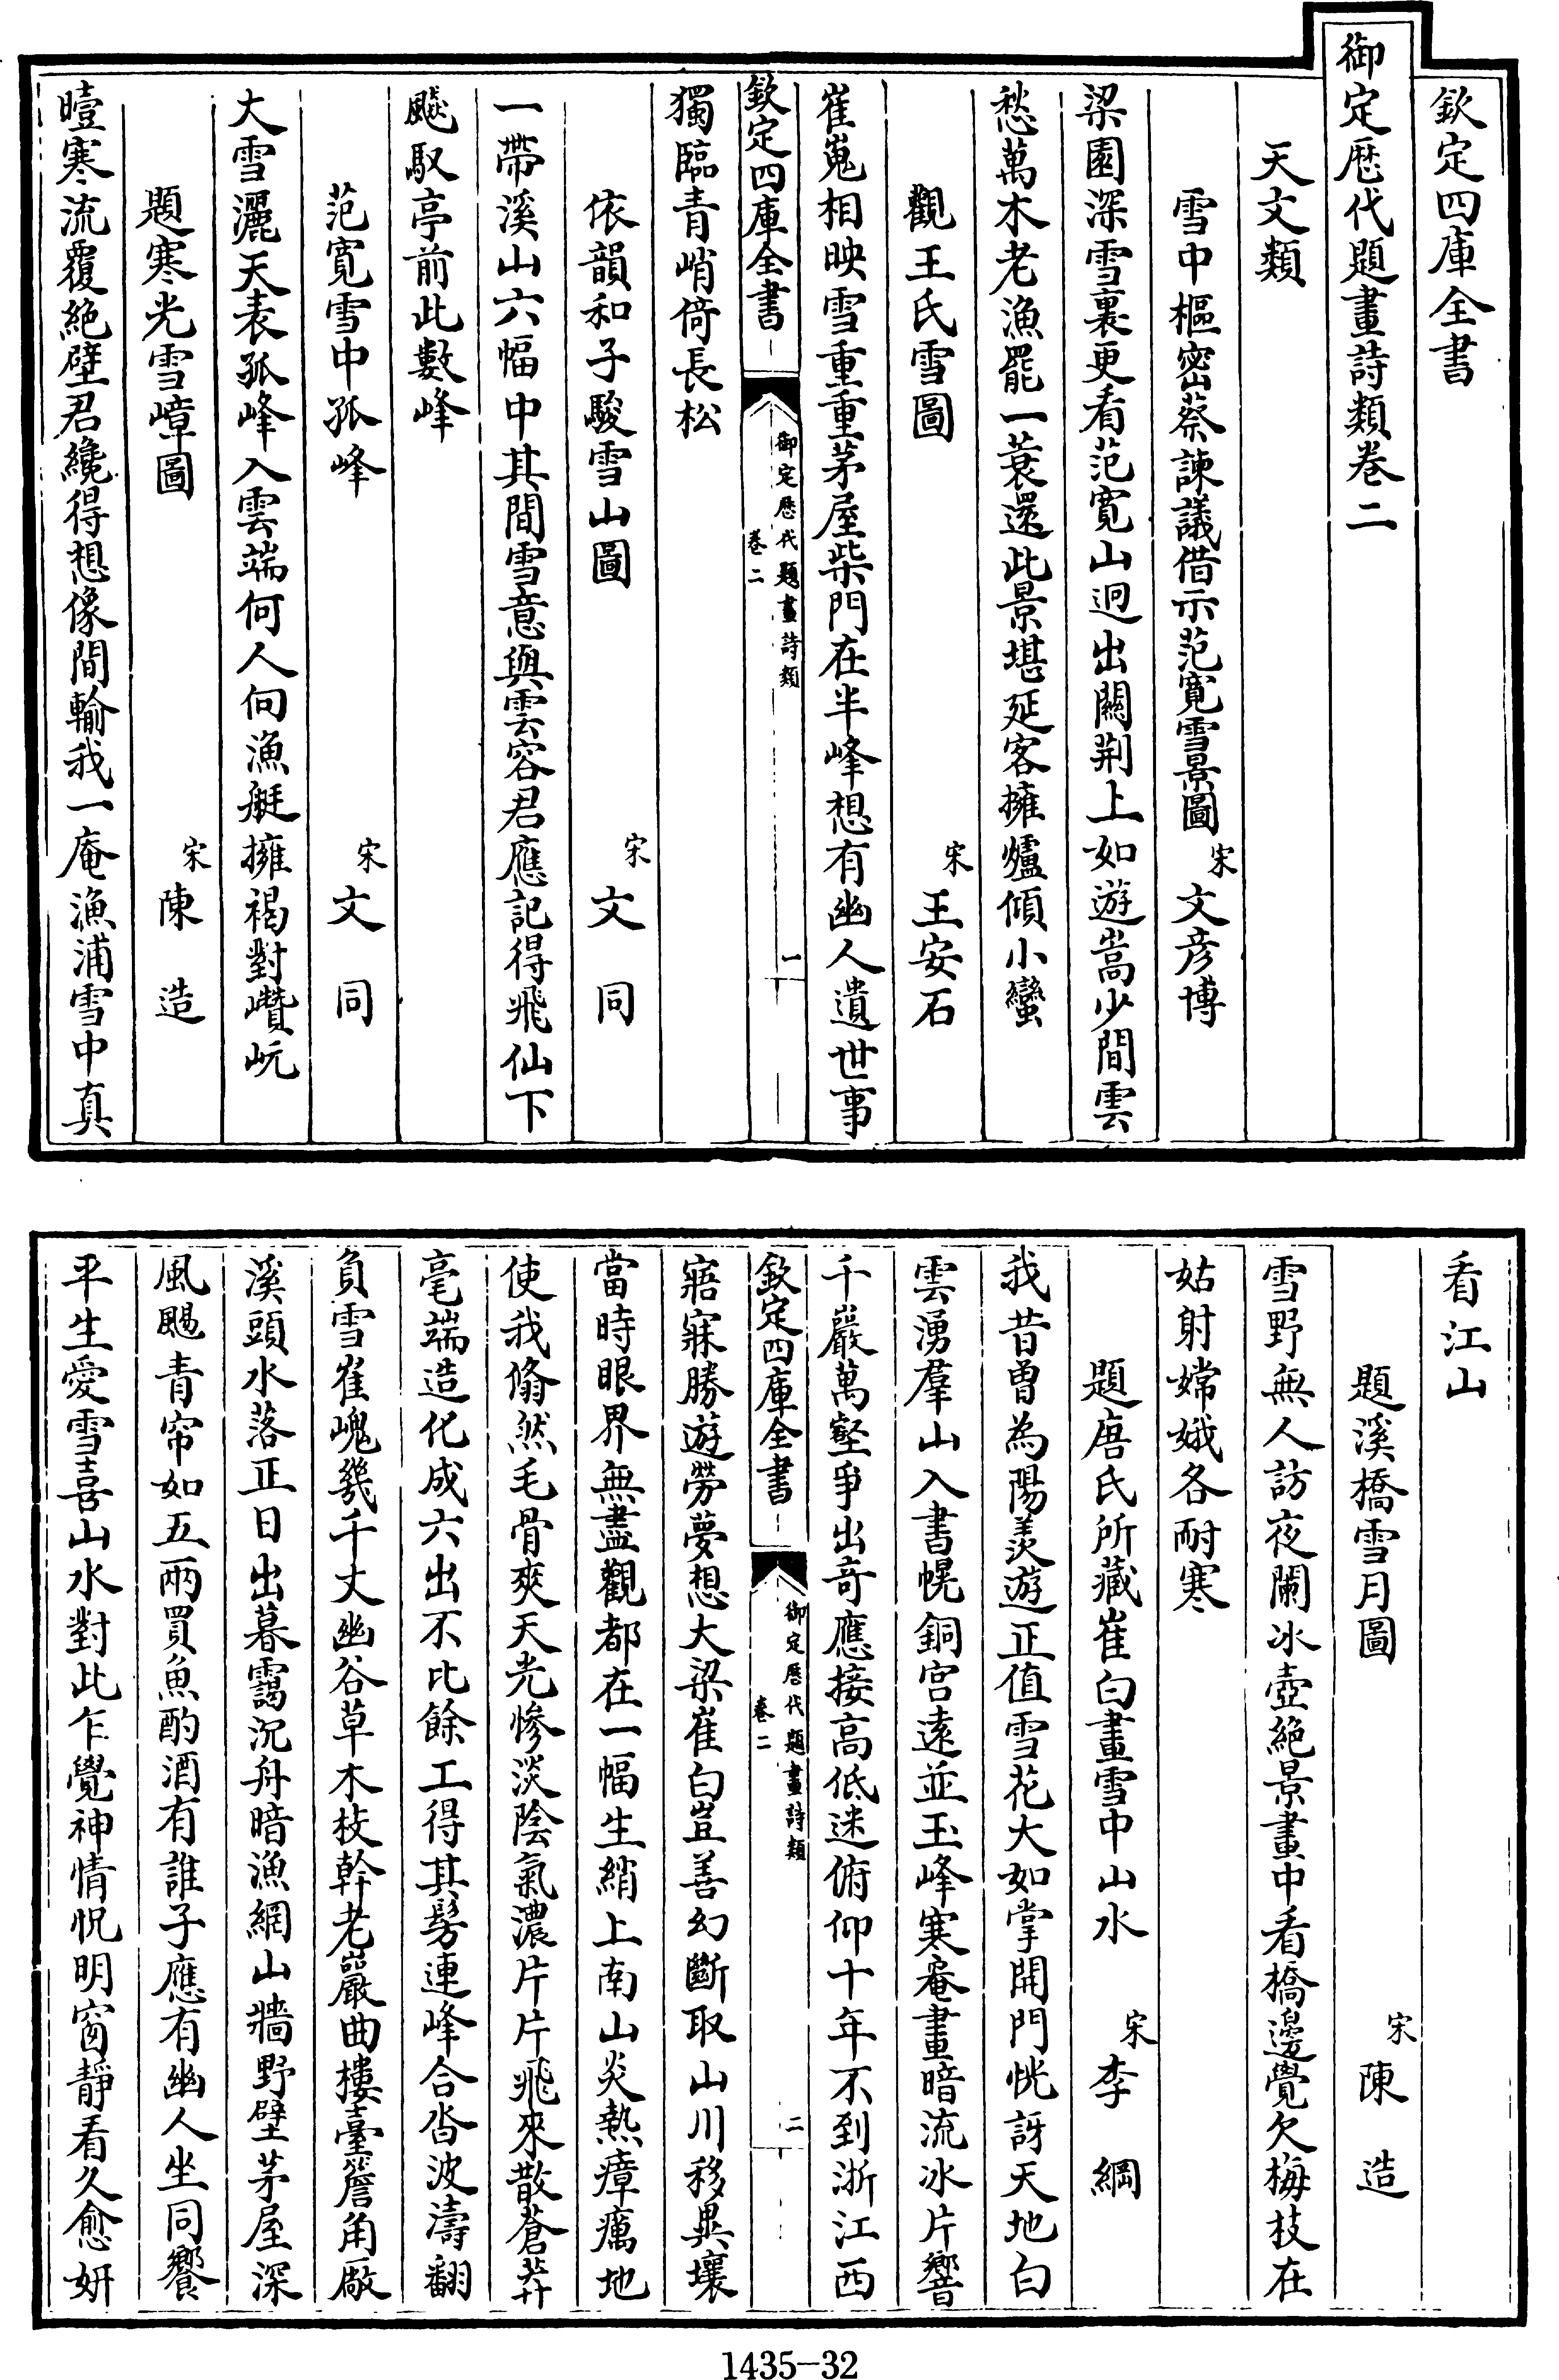 欽定四庫全書
御定歴代題畫詩類卷二
天文類
雪中樞密蔡諫議借示范寛雪景圖 宋 文彦博
梁園深雪裏更看范寛山迥出闗荆上如遊嵩少間雲
愁萬木老漁罷一蓑還此景堪延客擁爐傾小蠻
觀王氏雪圖 宋 王安石
崔嵬相映雪重重茅屋柴門在半峰想有幽人遺世事
欽定四庫全書 御定歴代題畫詩類 卷二 一
獨臨青峭倚長松
依韻和子駿雪山圖 宋 文同
一帶溪山六幅中其間雪意與雲容君應記得飛仙下
飈馭亭前此數峰
范寛雪中孤峰 宋 文同
大雪灑天表孤峰入雲端何人向漁艇擁褐對巑岏
題寒光雪嶂圖 宋 陳造
曀寒流覆絶壁君纔得想像間輸我一庵漁浦雪中真
看江山
題溪橋雪月圖 宋 陳造
雪野無人訪夜闌冰壺絶景畫中看橋邊覺欠梅枝在
姑射嫦娥各耐寒
題唐氏所藏崔白畫雪中山水 宋 李綱
我昔曾為陽羨遊正值雪花大如掌開門恍訝天地白
雲湧羣山入書幌銅宫遠並玉峰寒菴畫暗流冰片響
千巖萬壑爭出竒應接髙低迷俯仰十年不到浙江西
欽定四庫全書 御定歴代題畫詩類 卷二 二
寤寐勝遊勞夢想大梁崔白豈善幻斷取山川移異壤
當時眼界無盡觀都在一幅生綃上南山炎熱瘴癘地
使我翛然毛骨爽天光慘淡陰氣濃片片飛來散蒼莽
毫端造化成六出不比餘工得其髣連峰合沓波濤翻
負雪崔嵬幾千丈幽谷草木枝幹老巖曲樓臺簷角厰
溪頭水落正日出暮靄沉舟暗漁網山牆野壁茅屋深
風颺青帘如五兩買魚酌酒有誰子應有幽人坐同饗
平生愛雪喜山水對此乍覺神情怳明窗靜看久愈妍
1435-32